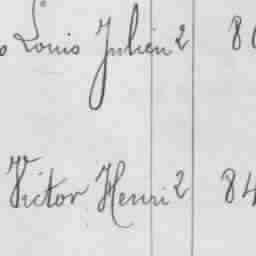 Louis Julien 2 8
Victor Henri 2 84